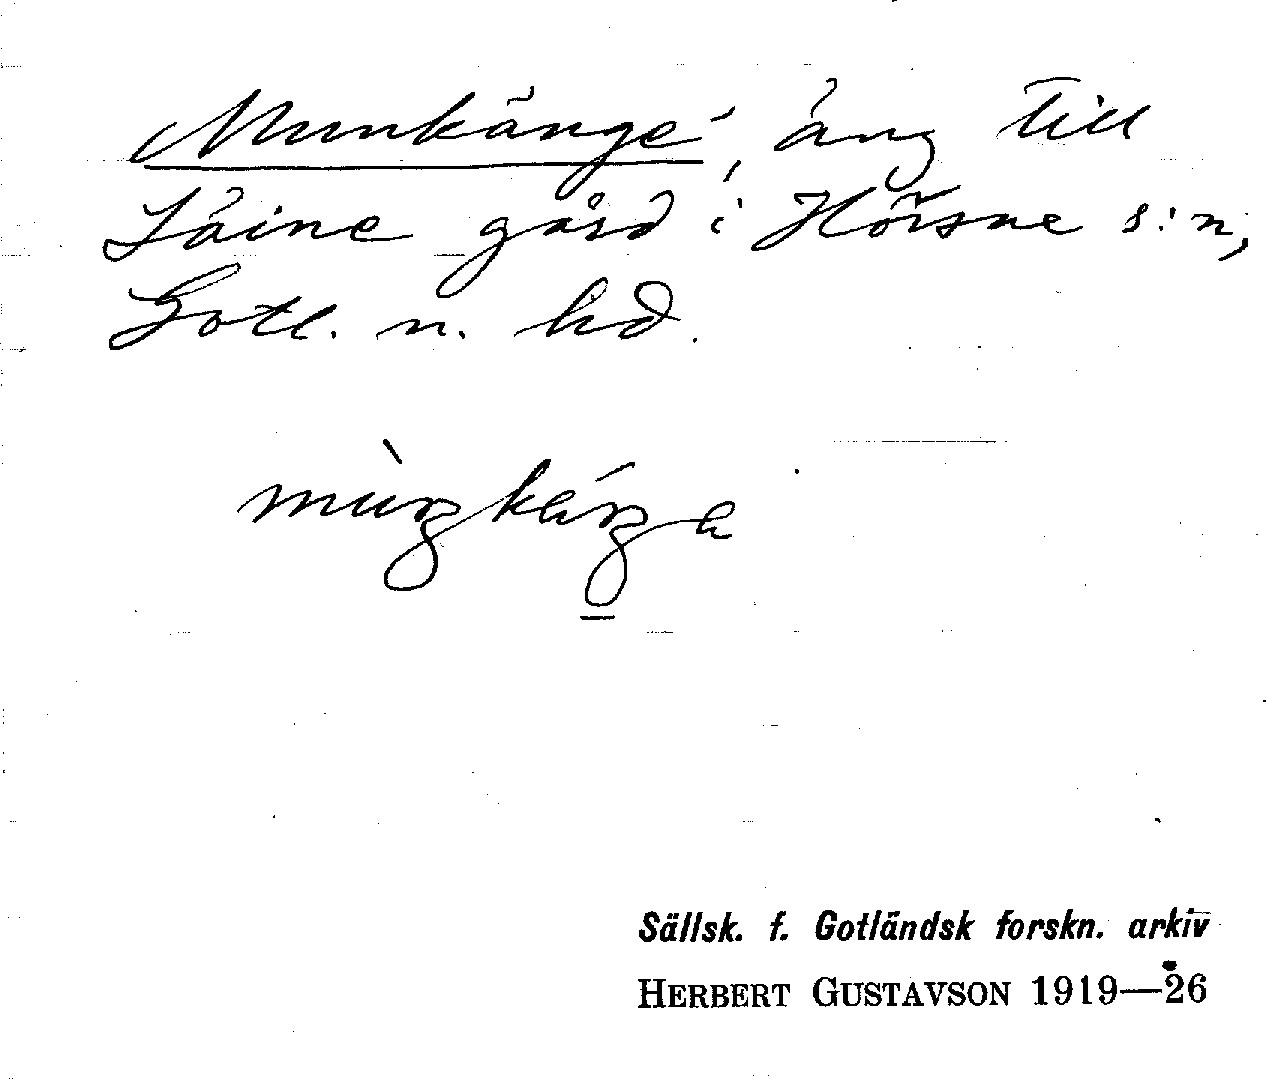 Munkänge, äng till
Såine gård i Hörsne s:n,
Gotl. n. hd.
mùŋkáŋa
Sällsk. f. Gotländsk forskn. arkiv
HERBERT GUSTAVSON 1919—26